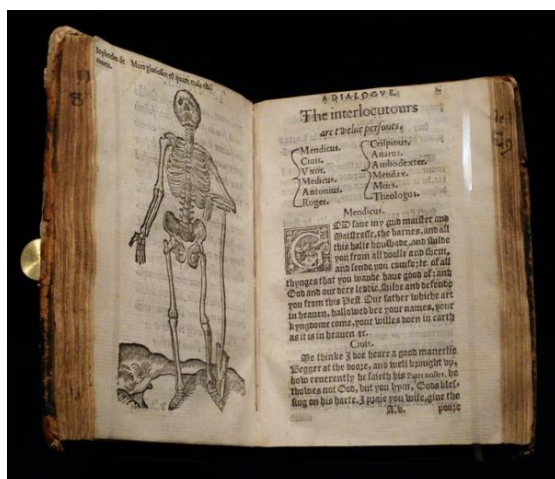 A DIALOGVE
The interlocutours
are twelue persones.
Mendicus.
Ciuis.
Vxor.
Medicus.
Antonius.
Roger.
Crispinus.
Auarus.
Ambodexter.
Mendax.
Mors.
Theologus.
Mendicus.
GOD saue my gud maister and
Maistresse, the barnes, and all
this halie houshade, and shilde
you from all doolle and shem,
and sende you comforte of all
thynges that you waude haue good of: and
God and our dere ledie, shilde and defende
you from this Pest. Our father whiche art
in heauen, hallowed bee your names, your
kyngdome come, your willes doen in earth
as it is in heauen &c.
Ciuis.
Me thinke I doe heare a good manerlie
Begger at the doore, and well brought vp,
how reuerently he saieth his Pater noster. he
thowes not God, but you hym, Gods bles-
sing on his harte. I praie you wife, giue the
A.v. poore